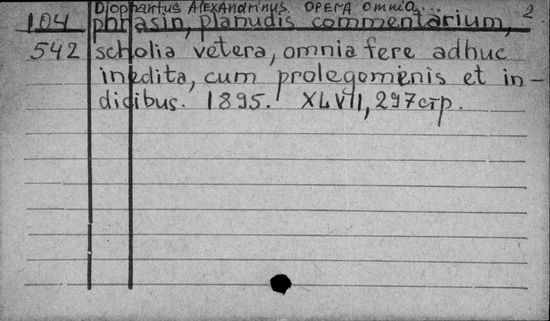 Diophantus Alexandrinus. Opera omnia... 2
104 phrasin, planudis commentarium,
542 scholia vetera, omnia fere adhuc
inedita, cum prolegomenis et in-
dicibus. 1895. XLVII, 297 стр.